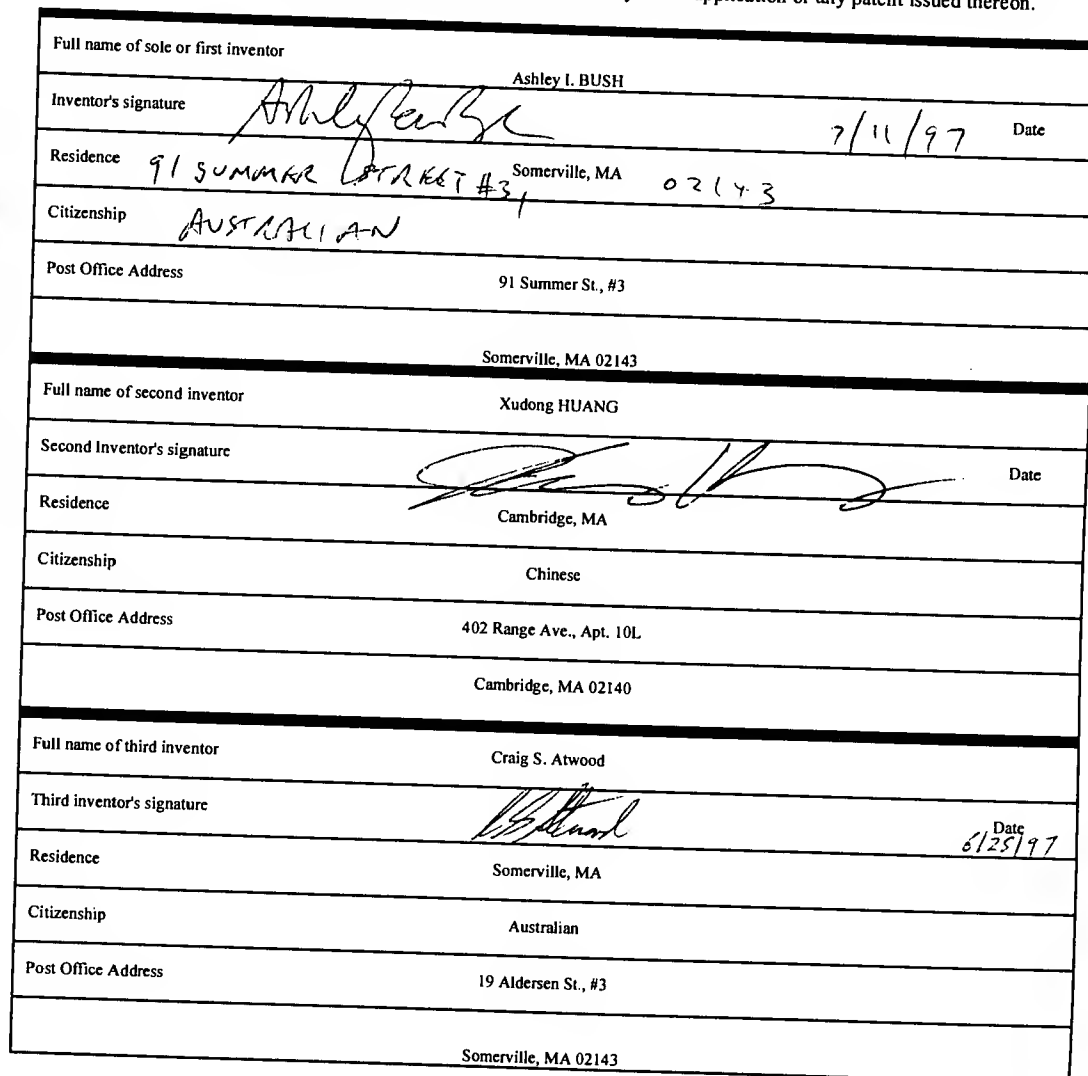 application or any patent issued thereon.
Full name of sole or first inventor
Ashley I. BUSH
Inventor's signature 7/11/97 Date
Residence 91 SUMMER STREET #3, Somerville, MA 02143
Citizenship AUSTRALIAN
Post Office Address 91 Summer St., #3
Somerville, MA 02143
Full name of second inventor Xudong HUANG
Second Inventor's signature Date
Residence Cambridge, MA
Citizenship Chinese
Post Office Address 402 Range Ave., Apt. 10L
Cambridge, MA 02140
Full name of third inventor Craig S. Atwood
Third inventor's signature Date 6/25/97
Residence Somerville, MA
Citizenship Australian
Post Office Address 19 Aldersen St., #3
Somerville, MA 02143